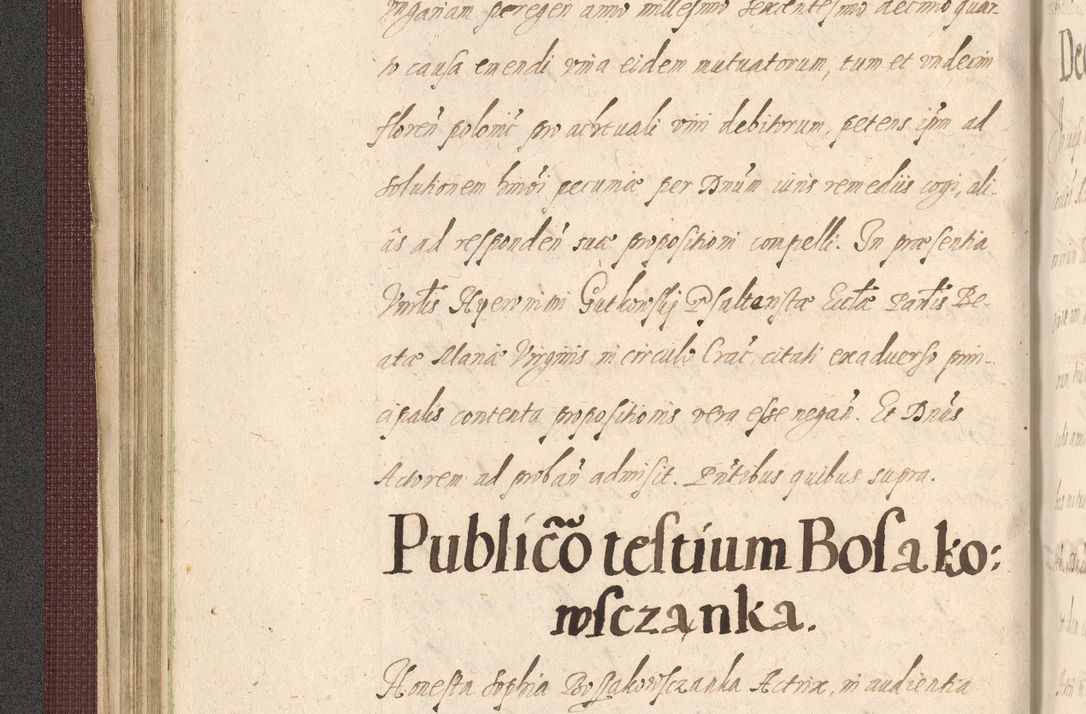 Ungariam peregen anno millesimo sexcentesimo decimo quar-
to causa emendi vina eidem mutuatorum, tum et vndecim
floreñ polonic̃ pro achtuali vini debitorum, petens ip̃m ad
solutionem hm̃oi pecuniæ per Dnũm iuris remediis cogi, ali-
ãs ad respondeñ suæ propositioni compelli. In præsentia
Hyeronimi Gutkowsky Psalteristæ Eccl̃æ Be-
atæ Mariæ Virginis in circulo Crac̃, citati ex aduerso prin-
cipalis contenta propositionis vera esse negañ. Et Dnũs
Actorem ad probañ admisit. Pñtibus quibus supra.
Publicõ testium Bosako:
wsczanka.
Honesta Sophia Bosakowsczanka Actrix, in audientia